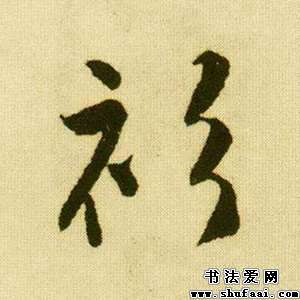 衫
书法爱网
www.shufaai.com